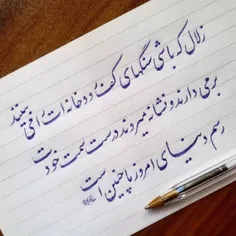 زلال که باشی سنگهای کف رودخانه ات را می بینند
برمی دارند و نشانه میروند درست سمت خودت
رسم دنیای امروز ما چنین است